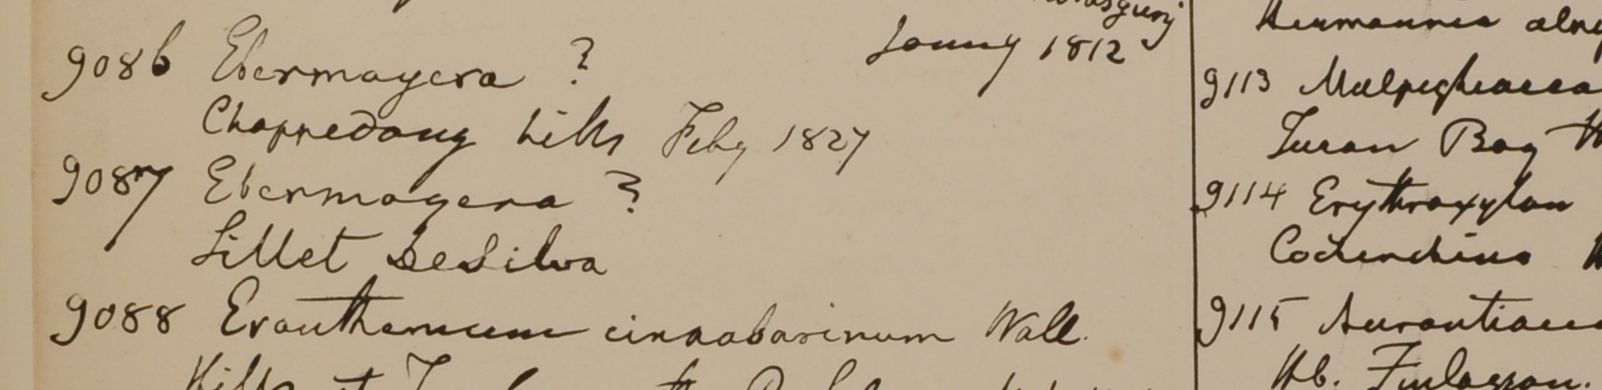 Jany 1812
9086 Ebermayera ?
Chappedong hills Feby 1827
9087 Ebermayera ?
Sillet DeSilva
9088 Eranthemum cinnabarinum Wall.
9113 Malpighiacea
Turan Bay
9114 Erythroxylon
Cochinchina
9115 Aurantiacea
Hb. Finlayson.